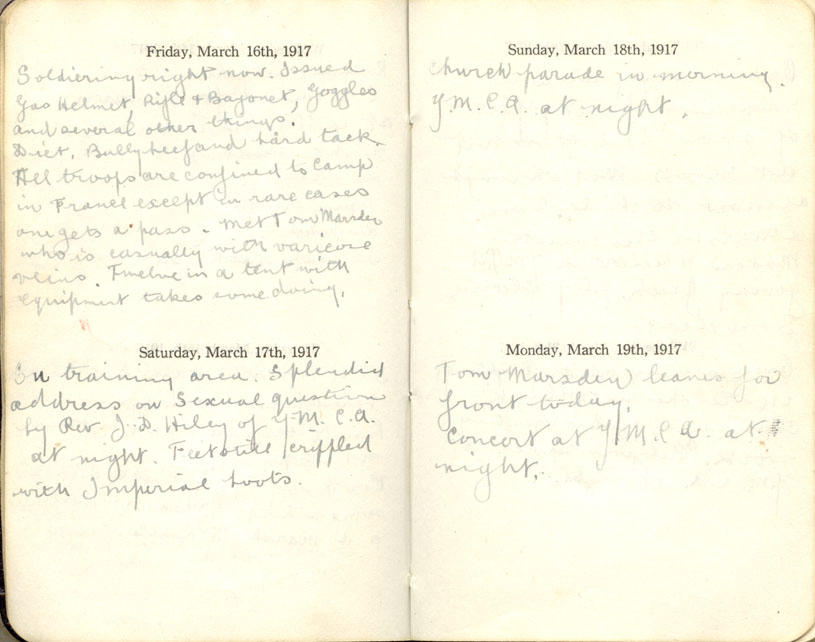 Friday, March 16th, 1917
Soldiering right now. Issued
Gas Helmet, Rifle & Bayonet, Goggles
and several other things.
Diet, Bully beef and hard tack.
All troops are confined to Camp
in France except in rare cases
one gets a pass. Met Tom Marsden
who is casually with varicose
veins. Twelve in a tent with
Equipment takes some doing.
Saturday, March 17th, 1917
On training area. Splendid
address on Sexual question
by Rev J. D. Hiley of Y.M.C.A.
at night. Feet still crippled
with Imperial boots.
Sunday, March 18th, 1917
Church parade in morning.
Y.M.C.A. at night.
Monday, March 19th, 1917
Tom Marsden leaves for
front today.
Concert at Y.M.C.A. at
night.